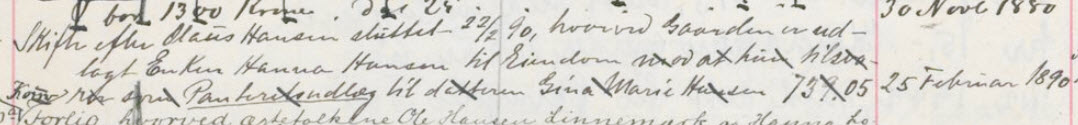 for 1300 Kroner. d. 28 30 Novb 1880
Skifte efter Claus Hansen sluttet 22/2 90, hvorved Gaarden er ud-
lagt Enken Hanna Hansen til Eiendom mod at hun tilsva-
rer som Panteudlæg til datteren Gina Marie Hansen 739.05 25 Februar 1890
Forlig hvorved ægtefolkene Ole Hansen Linnemark og Hanna